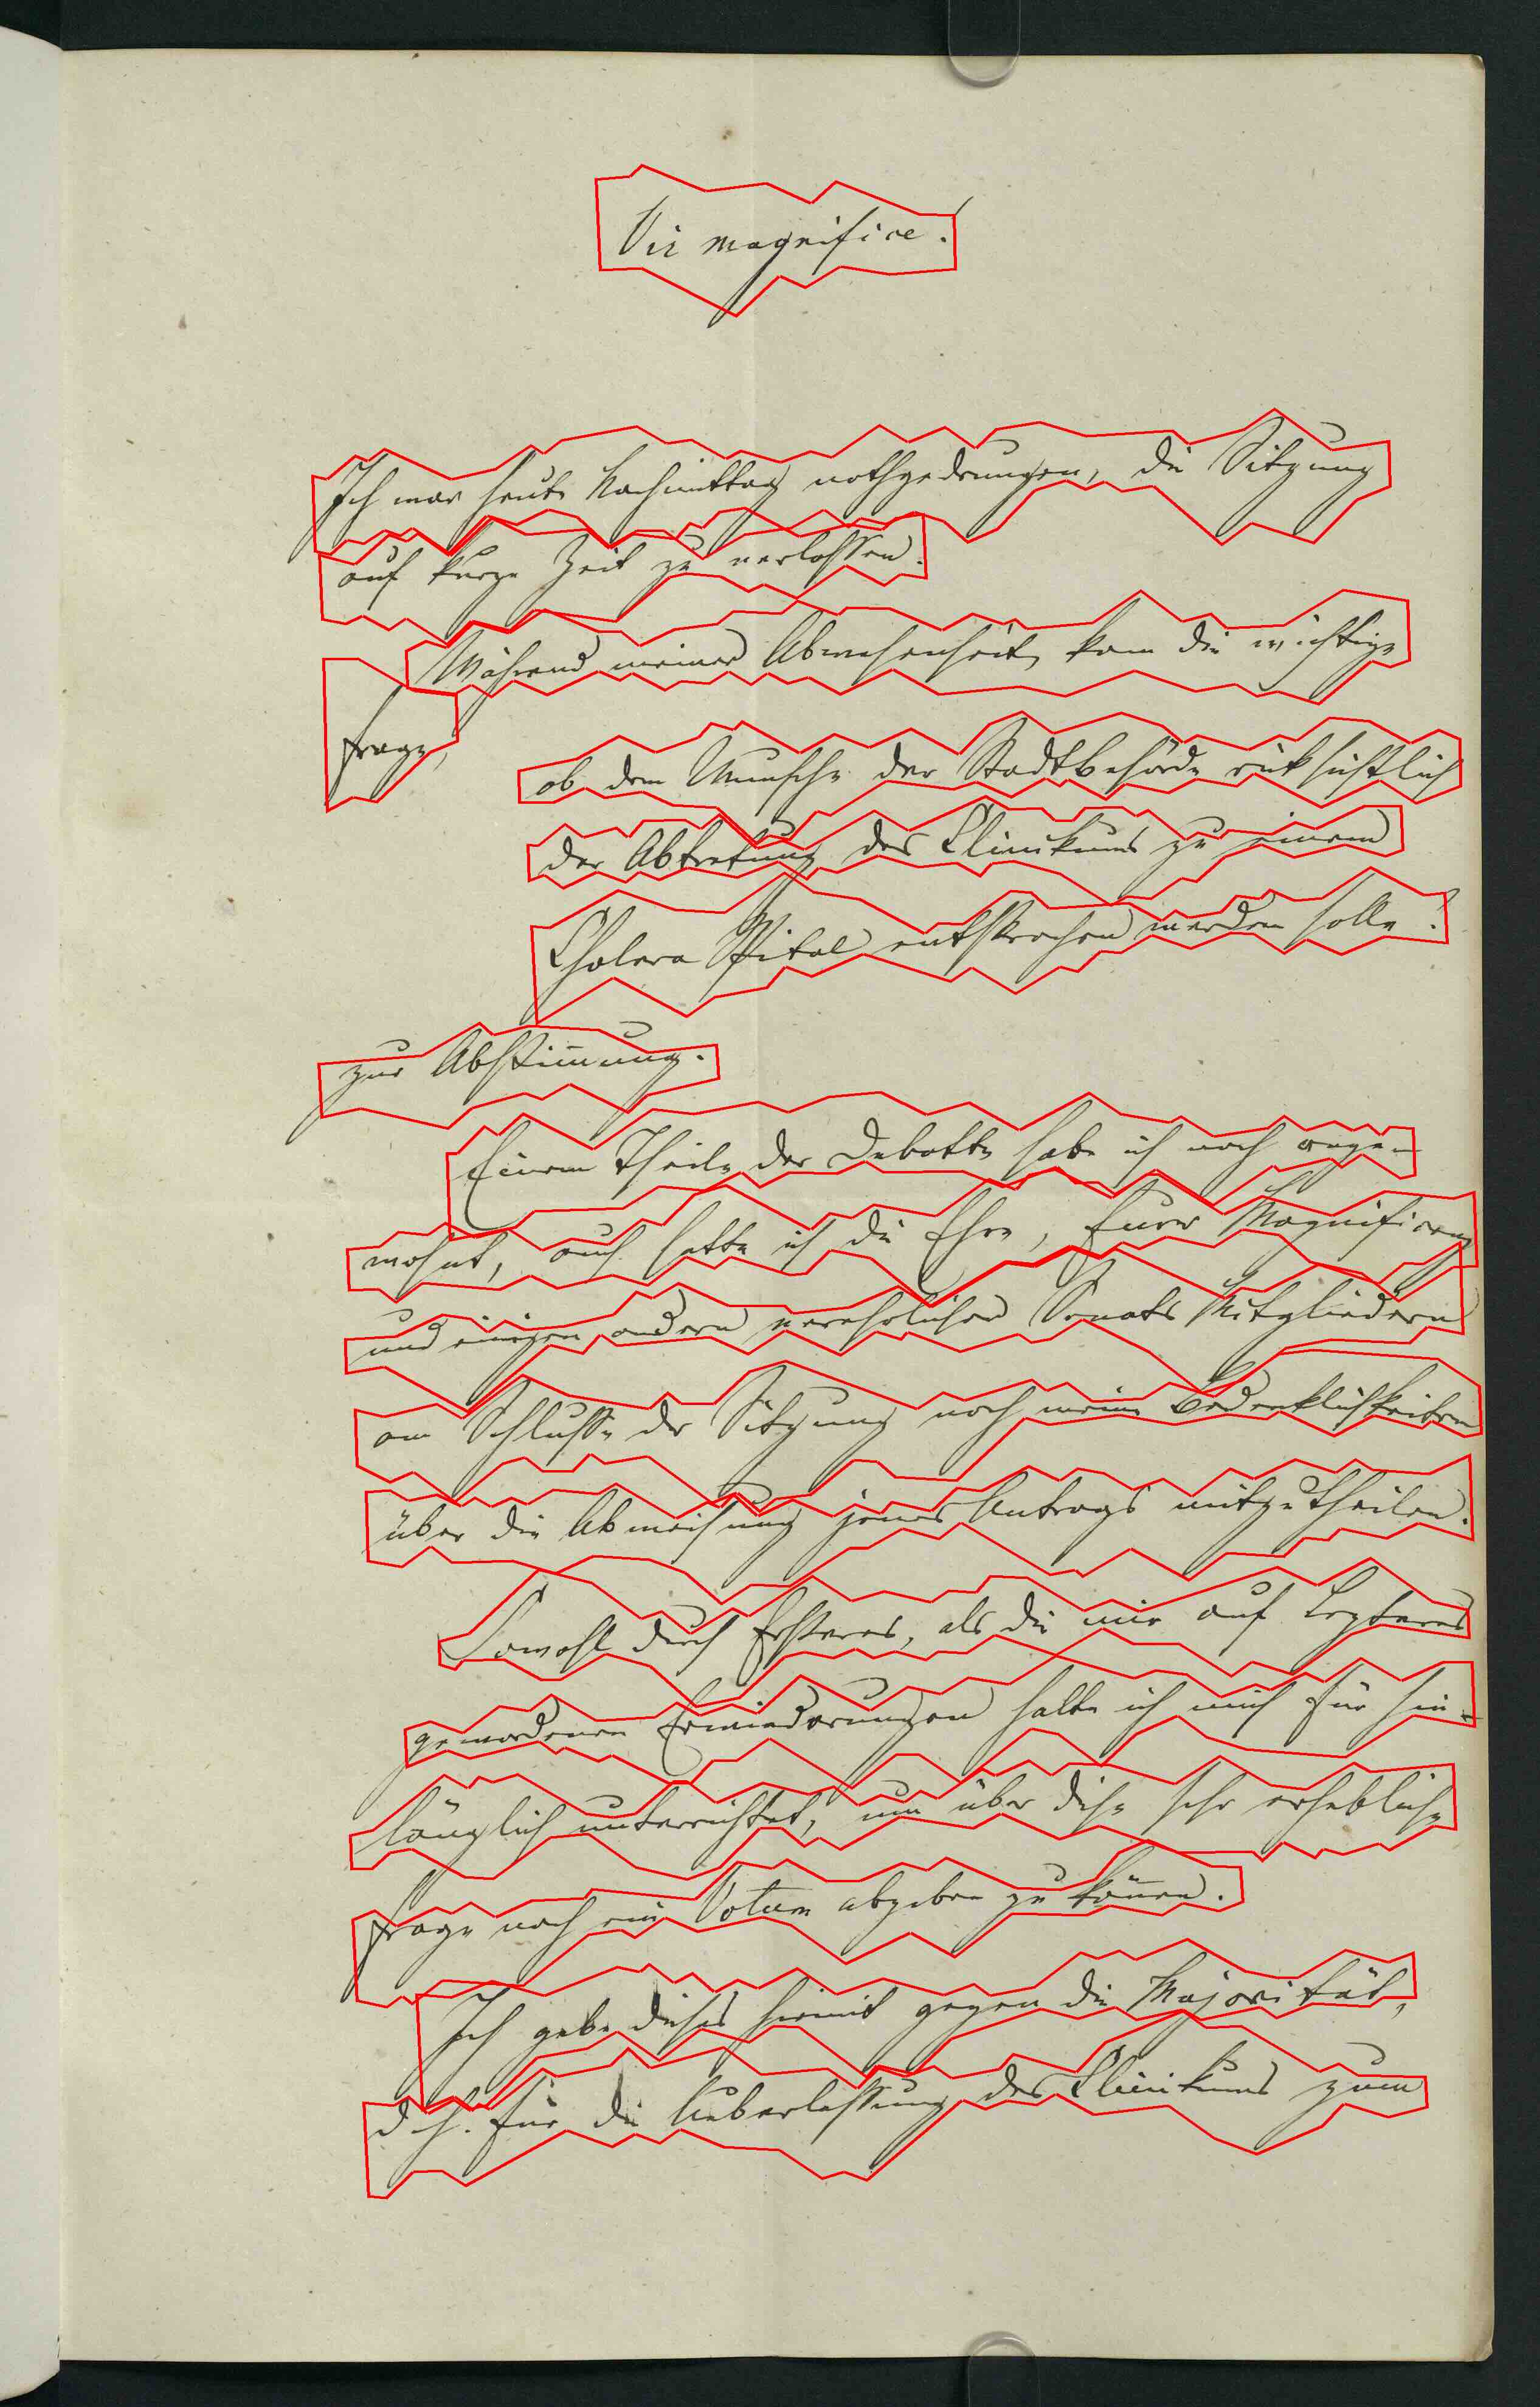 Vir magnifice!
Ich war heute Nachmittag nothgedrungen, die Sitzung
auf kurze Zeit zu verlassen.
Während meiner Abwesenheit kam die wichtige
Frage,
ob dem Wunsche der Stadtbehörde rücksichtlich
der Abtretung des Clinikums zu einem
Cholera Spital entsprochen werden solle?
zur Abstim̄ung.
Einem Theile der Debatte habe ich noch beige-
wohnt, auch hatte ich die Ehre, Eurer Magnificenz
und einigen andern verehrlichen Senats Mitgliedern
am Schlusse der Sitzung noch meine Bedenklichkeiten
über die Abweisung jenes Antrags mitzutheilen.
Sowohl durch Ersteres, als die mir auf Letzteres
gewordenen Erwiederungen halte ich mich für hin-
länglich unterrichtet, um über diese sehr erhebliche
Frage noch ein Votum abgeben zu kön̄en.
Ich gebe dieses hiemit gegen die Majorität,
d. h. für die Ueberlassung des Clinikums zum